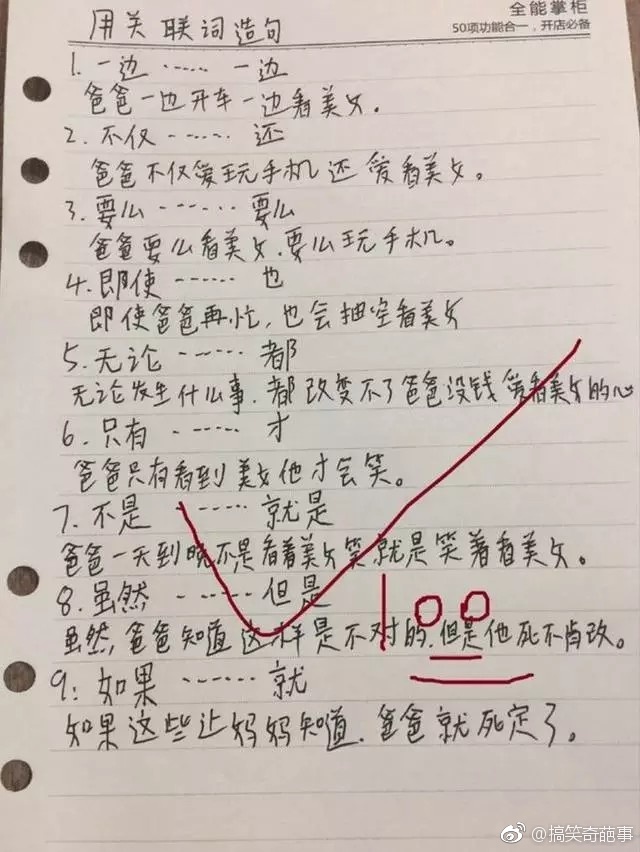 全能掌柜
50项功能合一，开店必备
用关联词造句
1. 一边 …… 一边
爸爸一边开车一边看美女.
2. 不仅 …… 还
爸爸不仅爱玩手机还爱看美女。
3. 要么 …… 要么
爸爸要么看美女.要么玩手机。
4. 即使 …… 也
即使爸爸再忙,也会抽空看美女
5. 无论 …… 都
无论发生什么事.都改变不了爸爸没钱爱看美女的心
6. 只有 …… 才
爸爸只有看到美女他才会笑。
7. 不是 …… 就是
爸爸一天到晚不是看着美女笑就是笑着看美女。
8. 虽然 …… 但是
虽然,爸爸知道这样是不对的.但是他死不肯改。
100
9: 如果 …… 就
如果这些让妈妈知道.爸爸就死定了。
@搞笑奇葩事